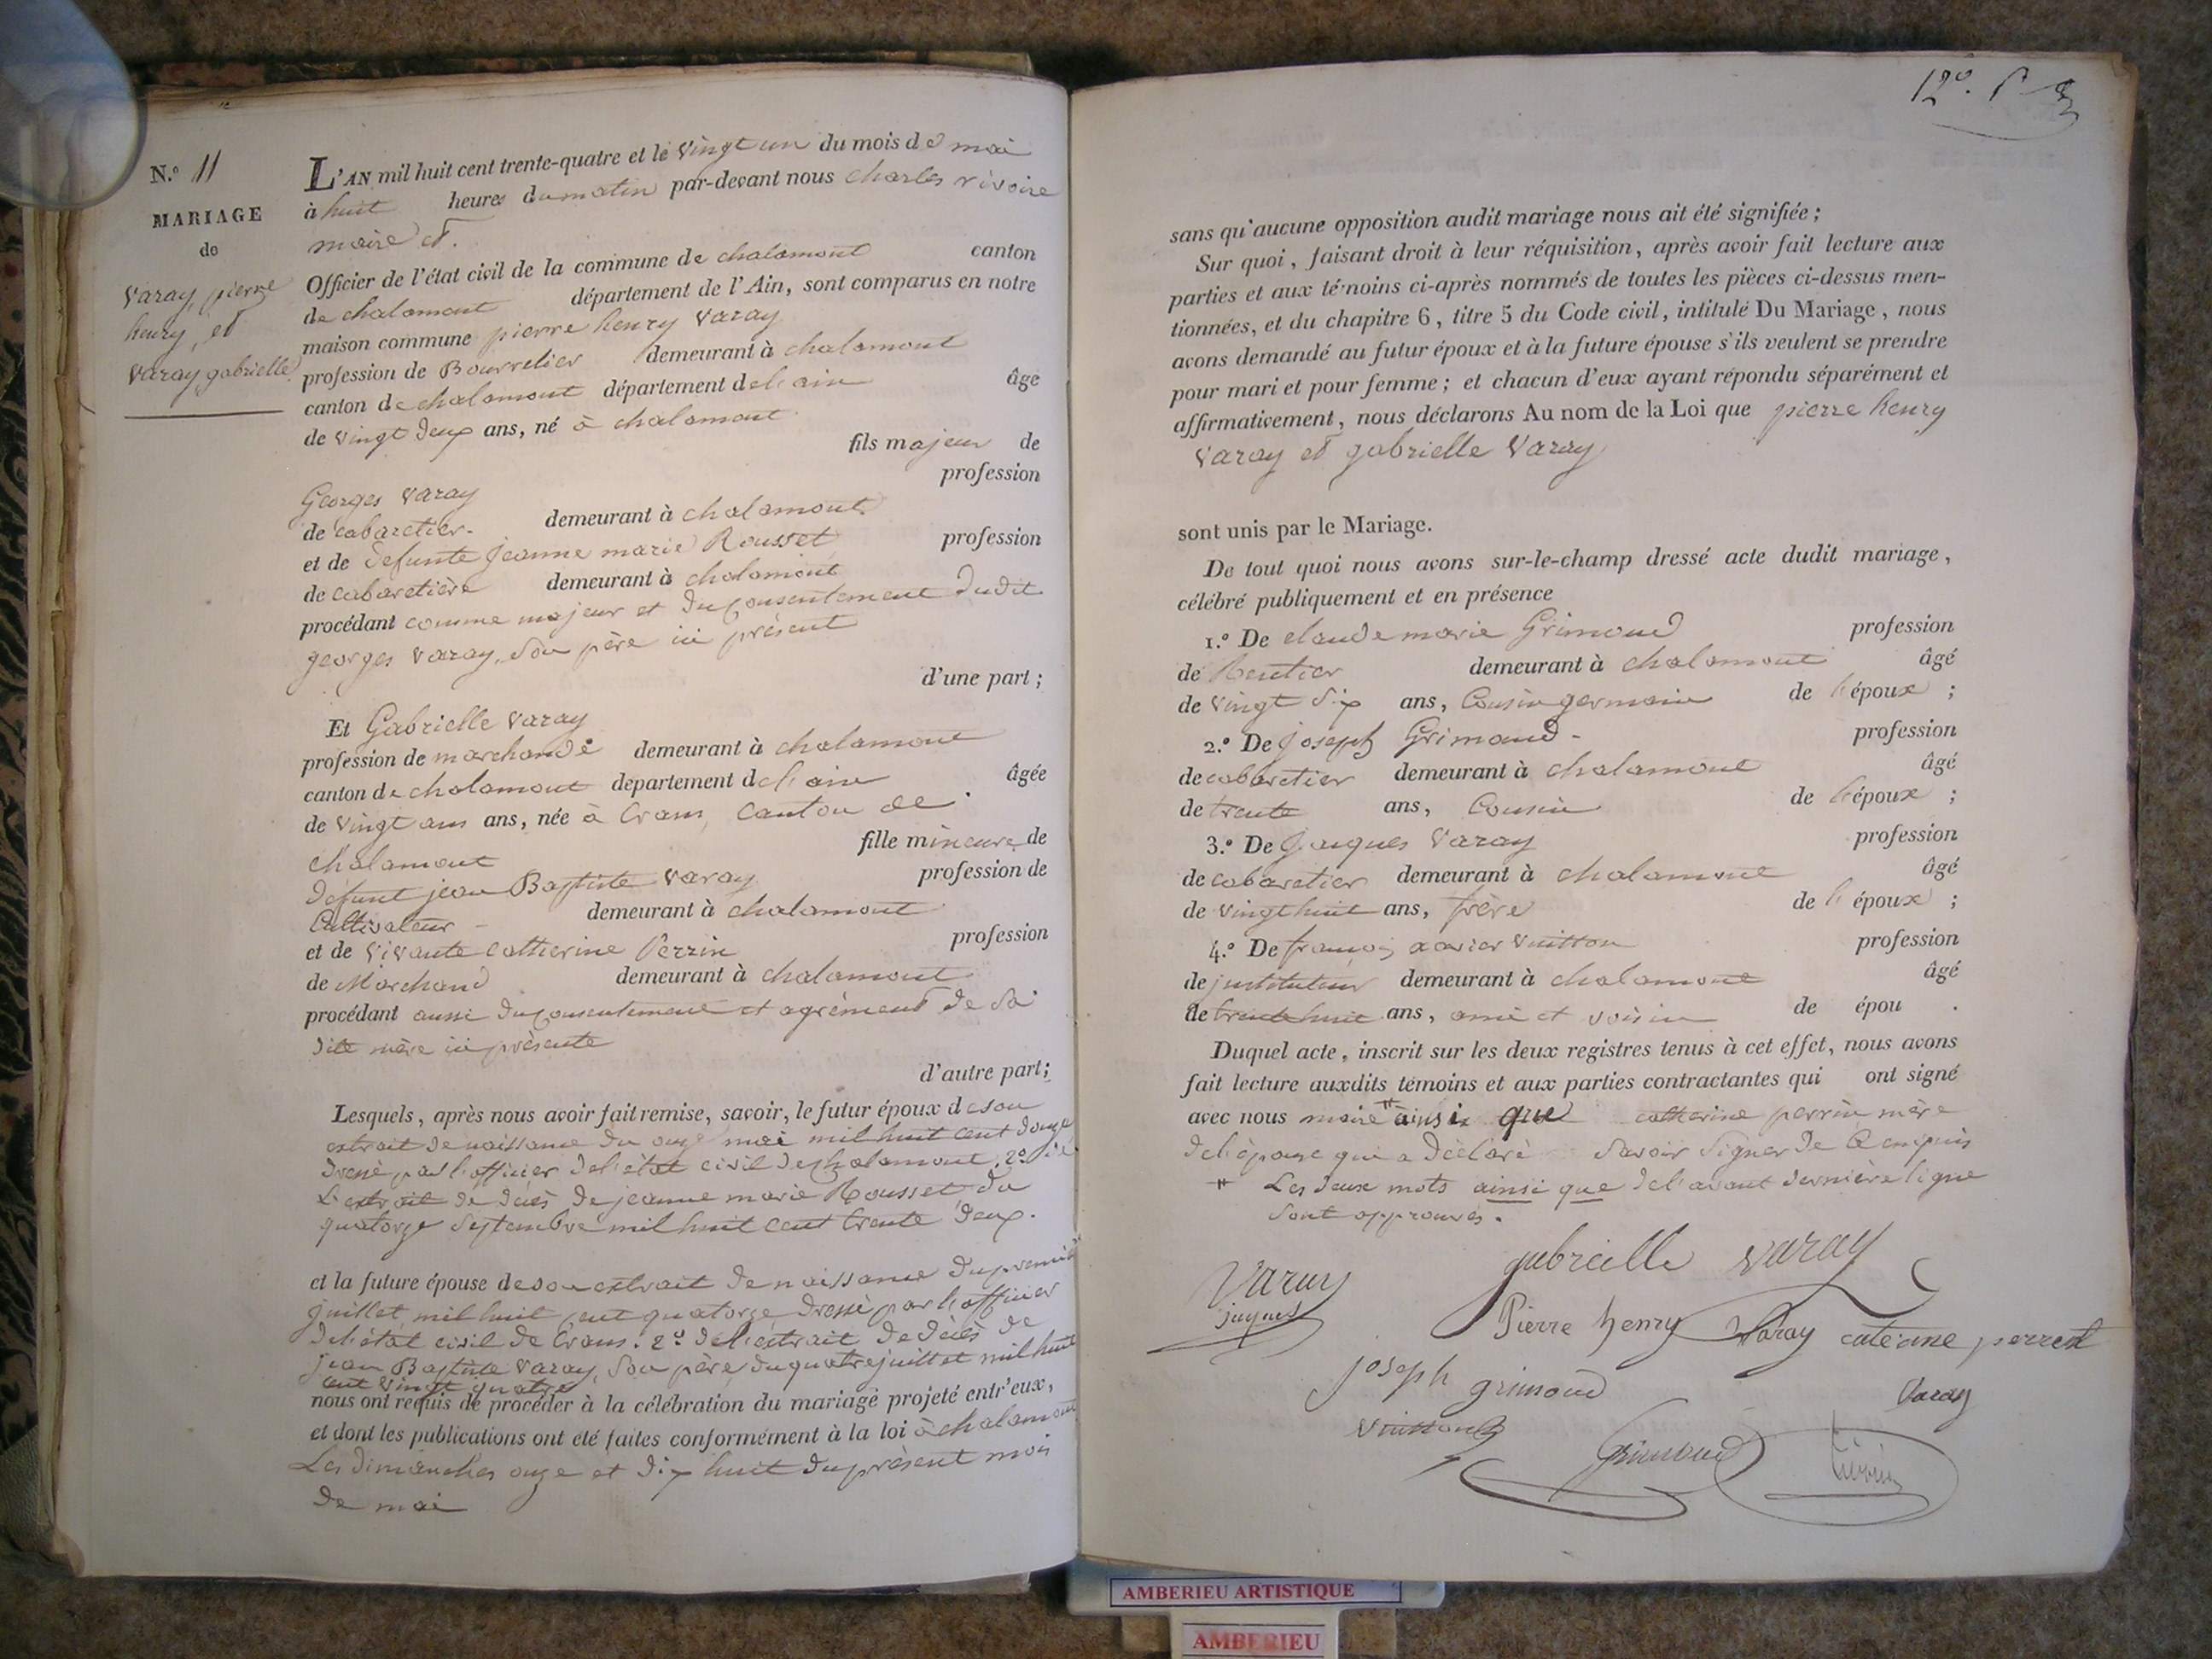 N.° 11
MARIAGE
de
Varay, pierre
henry, et
Varay, gabrielle
L'AN mil huit cent trente-quatre et le vingt un du mois de mai
à huit heures du matin par-devant nous charles rivoire
maire et.
Officier de l'état civil de la commune de chalamont canton
de chalamont département de l'Ain, sont comparus en notre
maison commune pierre henry Varay
profession de Bourrelier demeurant à chalamont
canton de chalamont département de l'ain âgé
de vingt deux ans, né à chalamont
fils majeur de
Georges Varay profession
de cabaretier. demeurant à chalamont
et de defunte jeanne marie Rousset profession
de cabaretière demeurant à chalamont
procédant comme majeur et du consentement dudit
georges varay, son père ici présent
d'une part ;
Et Gabrielle Varay
profession de marchande demeurant à chalamont
canton de chalamont département de l'ain âgée
de vingt ans ans, née à Crans, canton de
chalamont fille mineure de
défunt jean Baptiste Varay profession de
Cultivateur demeurant à chalamont
et de vivante catherine Perrin profession
de Marchand demeurant à chalamont
procédant aussi du consentement et agrément de sa
dite mère ici présente
d'autre part ;
Lesquels, après nous avoir fait remise, savoir, le futur époux de son
extrait de naissance du onze mai mil huit cent douze
dressé par l'officier de l'état civil de chalamont. 2.° de
L'extrait de décès de jeanne marie Rousset du
quatorze Septembre mil huit cent trente deux.
et la future épouse de son extrait de naissance du premier
juillet mil huit cent quatorze dressé par l'officier
de l'état civil de Crans. 2.° de l'extrait de décès de
jean Baptiste Varay, son père du quatre juillet mil huit
cent vingt quatre
nous ont requis de procéder à la célébration du mariage projeté entr'eux,
et dont les publications ont été faites conformément à la loi à chalamont
Les dimanches onze et dix huit du présent mois
de mai
12.°
sans qu'aucune opposition audit mariage nous ait été signifiée ;
Sur quoi, faisant droit à leur réquisition, après avoir fait lecture aux
parties et aux témoins ci-après nommés de toutes les pièces ci-dessus men-
tionnées, et du chapitre 6, titre 5 du Code civil, intitulé Du Mariage, nous
avons demandé au futur époux et à la future épouse s'ils veulent se prendre
pour mari et pour femme ; et chacun d'eux ayant répondu séparément et
affirmativement, nous déclarons Au nom de la Loi que pierre henry
varay et gabrielle Varay
sont unis par le Mariage.
De tout quoi nous avons sur-le-champ dressé acte dudit mariage,
célébré publiquement et en présence
1.° De claude marie Grimoud profession
de Rentier demeurant à chalamont âgé
de vingt six ans, Cousin germain de l'époux ;
2.° De joseph Grimaud - profession
de cabaretier demeurant à chalamont âgé
de trente ans, Cousin de l'époux ;
3.° De Jacques Varay profession
de cabaretier demeurant à chalamont âgé
de vingt huit ans, frère de l'époux ;
4.° De françois xavier Vuitton profession
de jnstituteur demeurant à chalamont âgé
de trente huit ans, ami et voisin de épou .
Duquel acte, inscrit sur les deux registres tenus à cet effet, nous avons
fait lecture auxdits témoins et aux parties contractantes qui ont signé
avec nous maire ainsi que catherine perrin mère
de l'épouse qui a déclaré savoir signer de ce enquis
Les deux mots ainsi que de l'avant dernière ligne
sont approuvés.
Varay
jaques
gabrielle varay
Pierre henry Varay
caterine perrin
joseph grimoud
Varay
Vuitton
Grimoud
AMBERIEU ARTISTIQUE
AMBERIEU